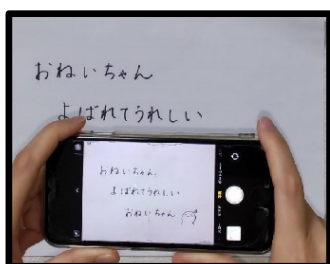 おねいちゃん
よばれてうれしい
おねいちゃん
よばれてうれしい
おねいちゃん